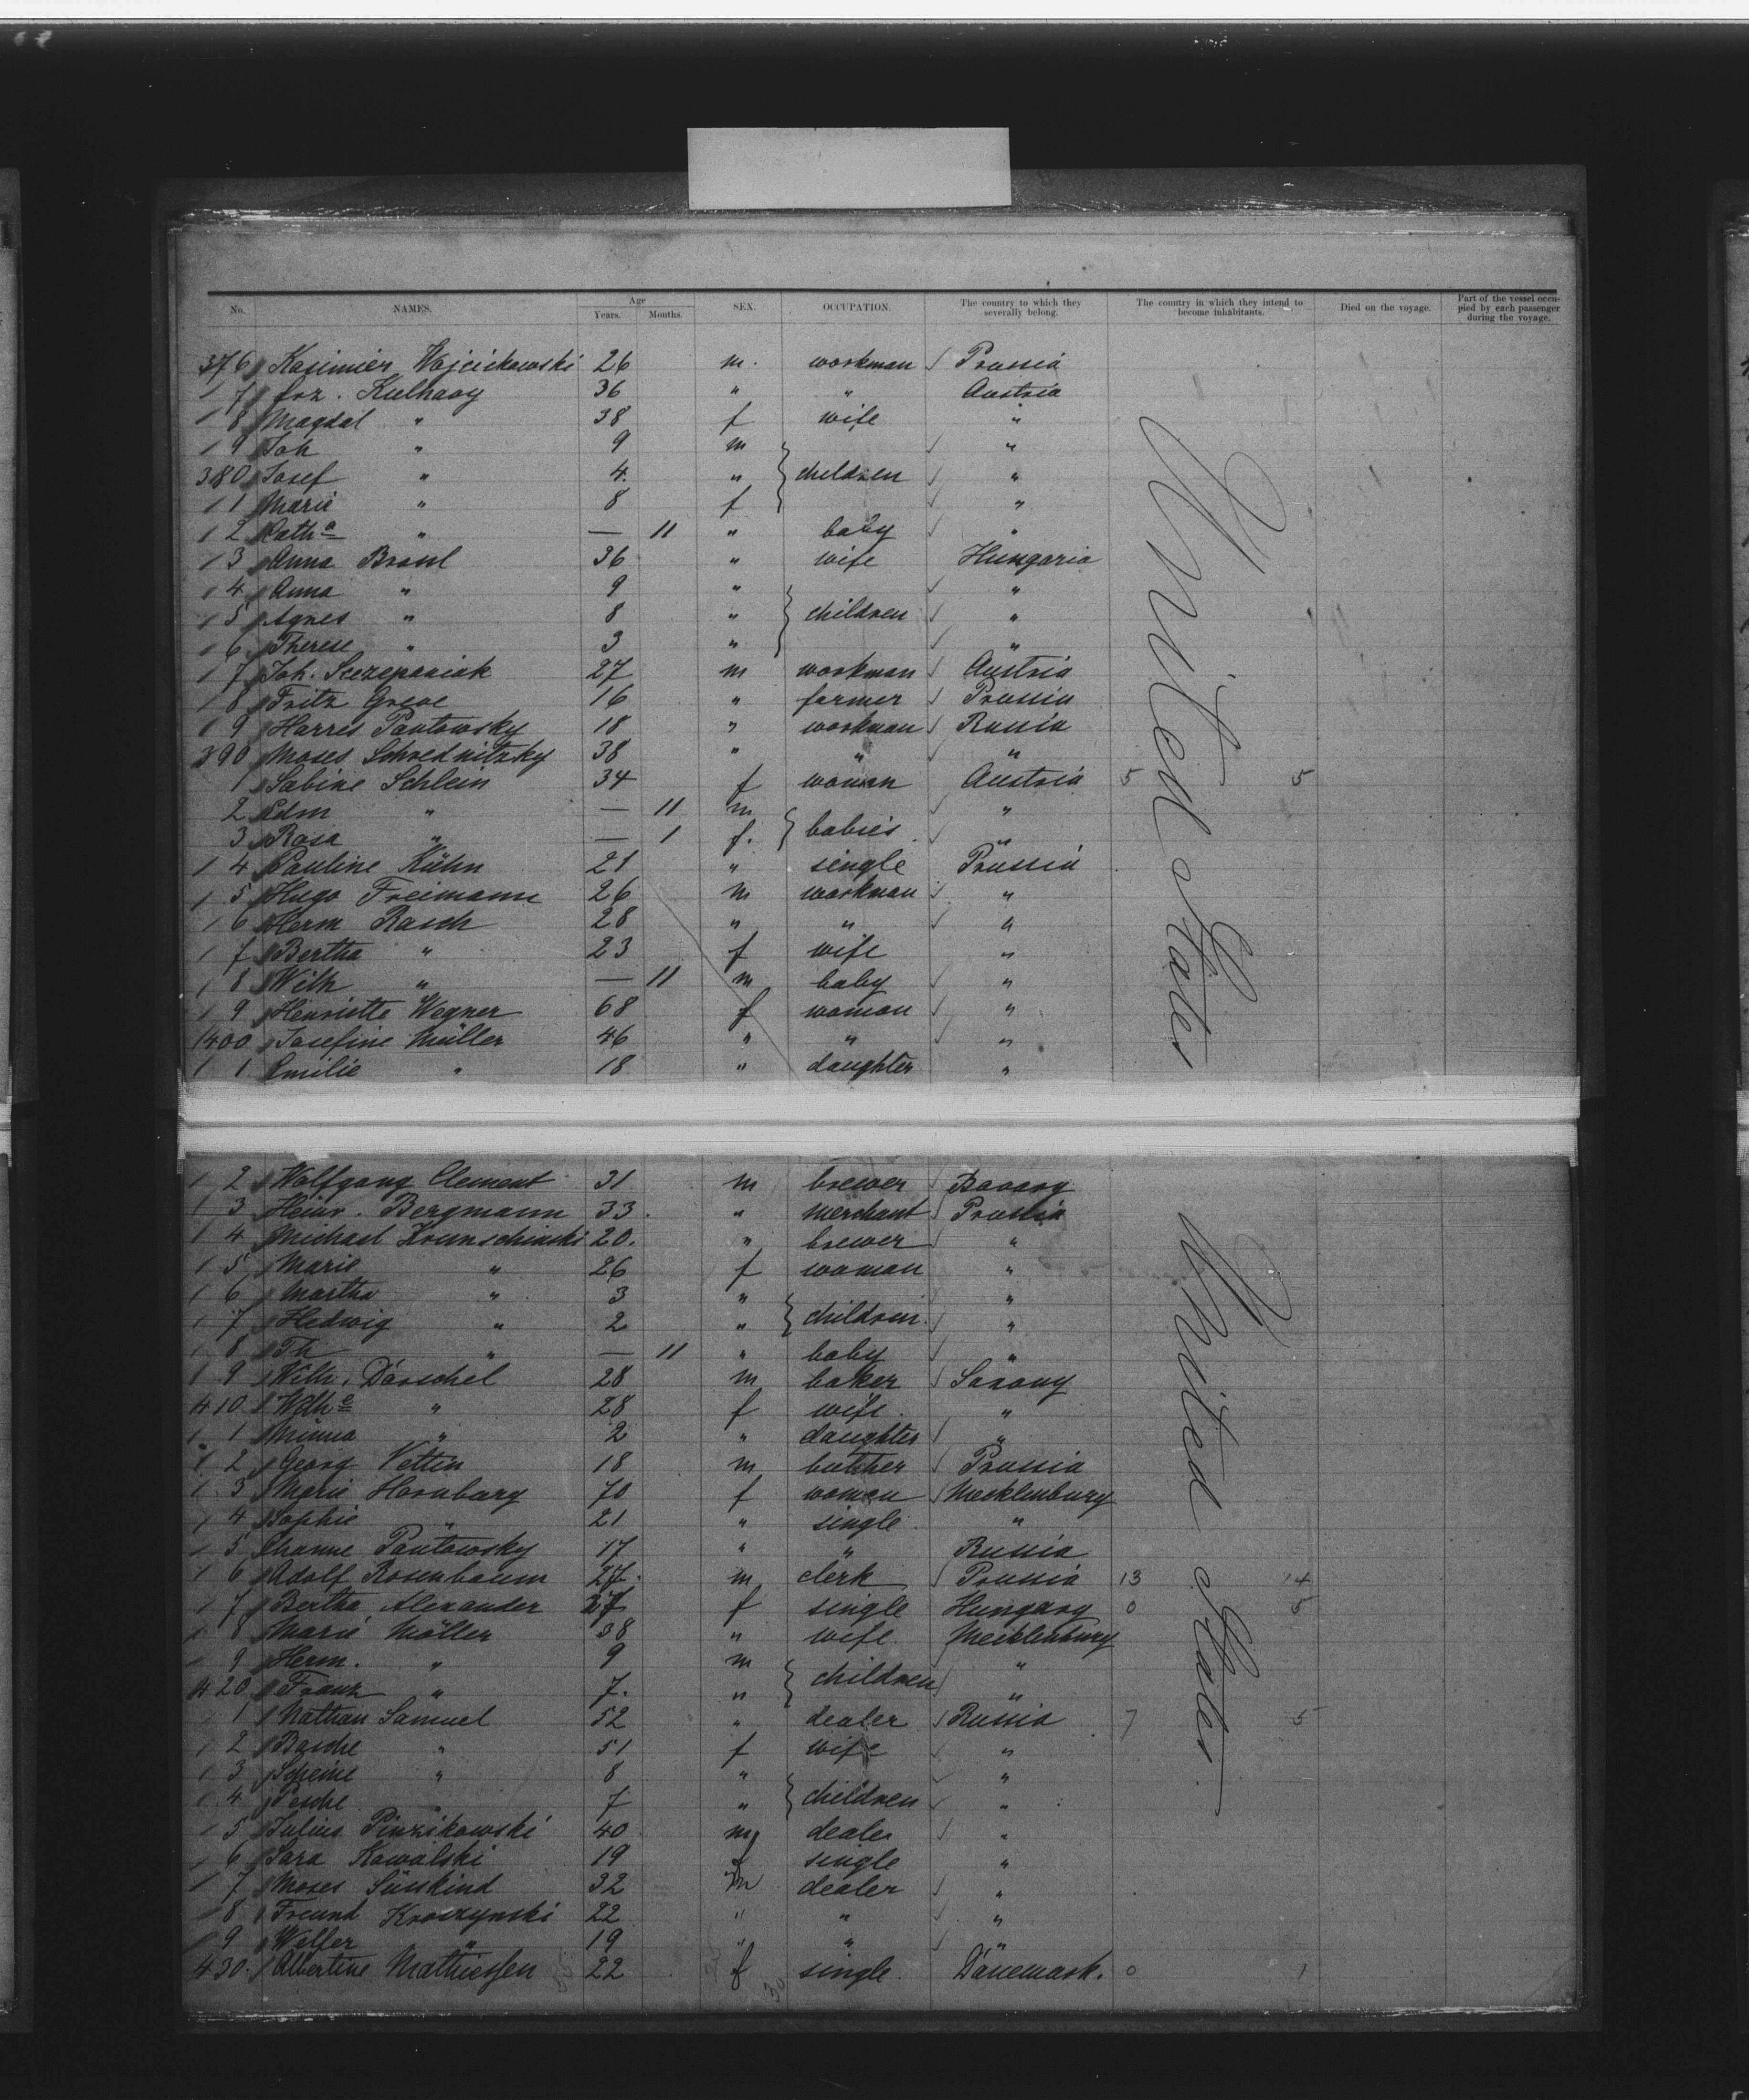 No. NAMES. Age Years. Months. SEX. OCCUPATION. The country to which they severally belong. The country in which they intend to become inhabitants. Died on the voyage. Part of the vessel occupied by each passenger during the voyage.
376 Kasimier Wojcickowski 26 m. workman Prussia
7 frz. Kulhavy 36 " " Austria
8 Magdal " 38 f wife "
9 Joh " 9 m "
380 Josef " 4. " children "
1 Marie " 8 f "
2 Cath a " — 11 " baby "
3 Anna 36 " wife Hungaria
4 Anna " 9 " "
5 Agnes " 8 " children "
6 Therese " 3 " "
7 Joh. Sczepaniak 27 m workman Austria
8 Fritz Greve 16 " farmer Prussia
9 Harres Pautowsky 18 " workman Russia
390 Moses Schrednitzky 38 " " "
1 Sabine Schlein 34 f woman Austria 5 5
2 Edm " — 11 m "
3 Rosa " — 1 f. babies "
4 Pauline Kühn 21 " single Prussia
5 Hugo Freimann 26 m workman "
6 Herm Rasch 28 " " "
7 Bertha " 23 f wife "
8 Wilh " — 11 m baby "
9 Henriette Wegner 68 f woman "
1400 Josefine Müller 46 " " "
1 Emilie " 18 " daughter "
United States
2 Wolfgang Clement 31 m brewer Bavary
3 Heinr. Bergmann 33. " merchant Prussia
4 Michael Krunschinski 20. " brewer "
5 Marie " 26 f woman "
6 Martha " 3 " "
7 Hedwig " 2 " children. "
8 Th " — 11 " baby "
9 Wilh. Därschel 28 m baker Saxony
410 Wilh e " 28 f wife. "
1 Minna " 2 " daughter "
2 Georg Vettin 18 m butcher Prussia
3 Marie Hornburg 70 f woman Mecklenburg
4 Sophie " 21 " single "
5 Pautowsky 17 " " Russia
6 Adolf Rosenbaum 27. m clerk Prussia 13 14
7 Bertha Alexander 27 f single Hungary 0 5
8 Marie Möller 38 " wife Mecklenburg
9 Herm. " 9 m "
420 Franz " 7. " children "
1 Nathan Samuel 52 " dealer Russia 7 5
2 Basche " 51 f wife "
3 Scheine " 8 " "
4 Pesche 7 " children "
5 Julius Pinzikowski 40 m dealer "
6 Sara Kowalski 19 f single "
7 Moses Süsskind 32 m dealer "
8 Freund Kroczynski 22 " " "
9 Welfer " 19 " " "
430. Albertine Mathiessen 22 f single. Dänemark. 0 1
United States